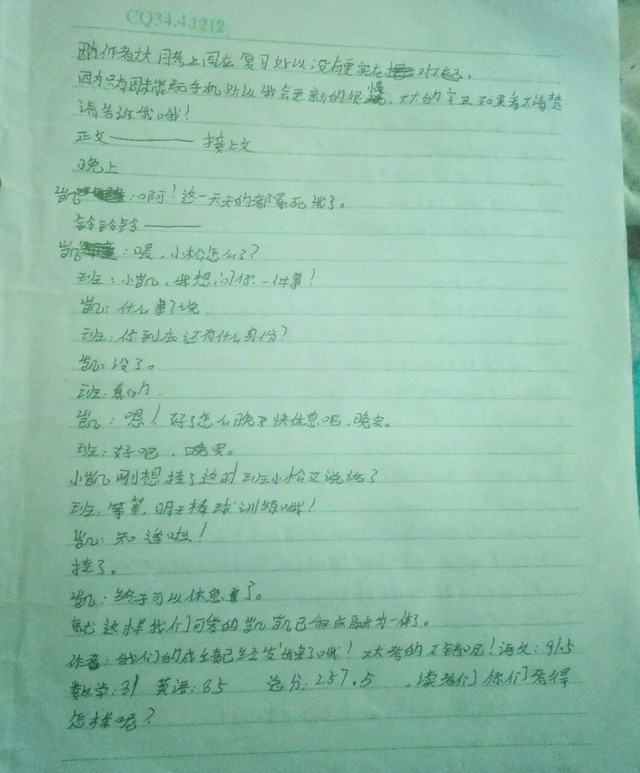 CQ34.4.1212
因为作者大大月考上周在复习所以没有更实在对不起,
因为只有周末能玩手机所以我会更新的很慢,大大的字丑如果看不清楚
请告诉我哦!
正文———— 接上文
晚上
凯:啊!这一天天的都累死我了。
铃铃铃———
凯:喂,小松怎么了?
班:小凯,我想问你一件事!
凯:什么事了说
班:你到底还有什么身份?
凯:没了。
班:真的
凯:嗯!好了怎么晚了快休息吧,晚安。
班:好吧,晚安。
小凯刚想挂了这时班小松又说话了
班:等等,明天棒球训练哦!
凯:知道啦!
挂了。
凯:终于可以休息了。
就这样我们可爱的凯凯已和床融为一体了。
作者:我们的成绩已经发出来了哦!大大考的不错呢!语文:91.5
数学:81 英语:85 总分:257.5 ,读者们你们考得
怎样呢?